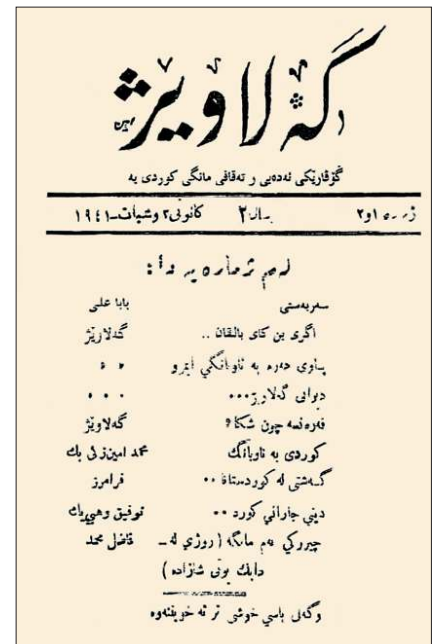 گەلاوێژ
گۆڤارێکی ئەدەبی و تەقافی مانگی کوردی یە
ژمارە ١و٢ ساڵ ٢ کانونی ٢ وشبات-١٩٤١
لەم ژمارە یە دا:
سەربەستی بابا علی
اگری بن کای بالقان .. گەلاوێژ
پیاوی دەرە بە ناوبانگی
دیوانی گەلاوێژ...
فەرەنسە چون شکا؟ گەلاوێژ
کوردی بە ناوبانگ محمد امین زکی بك
گەشتی لە کوردستانا .. فرامرز
دینی جارانی کورد .. توفیق وهبی بك
چیروکی ئەم مانگە ( روژی لە - فاضل محمد
دایك بونی شازادە )
وگەلی باسی خوشی تر ئە خوینەوە